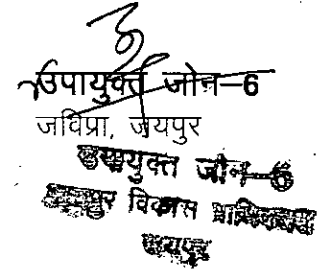 उपायुक्त जोन–6
जविप्रा, जयपुर
उपायुक्त जोन–6
जयपुर विकास प्राधिकरण
जयपुर